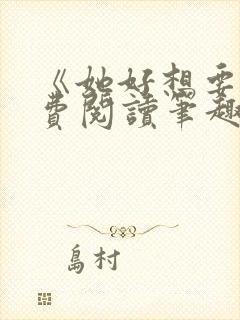 《她好想要
費閱讀筆趣
島村